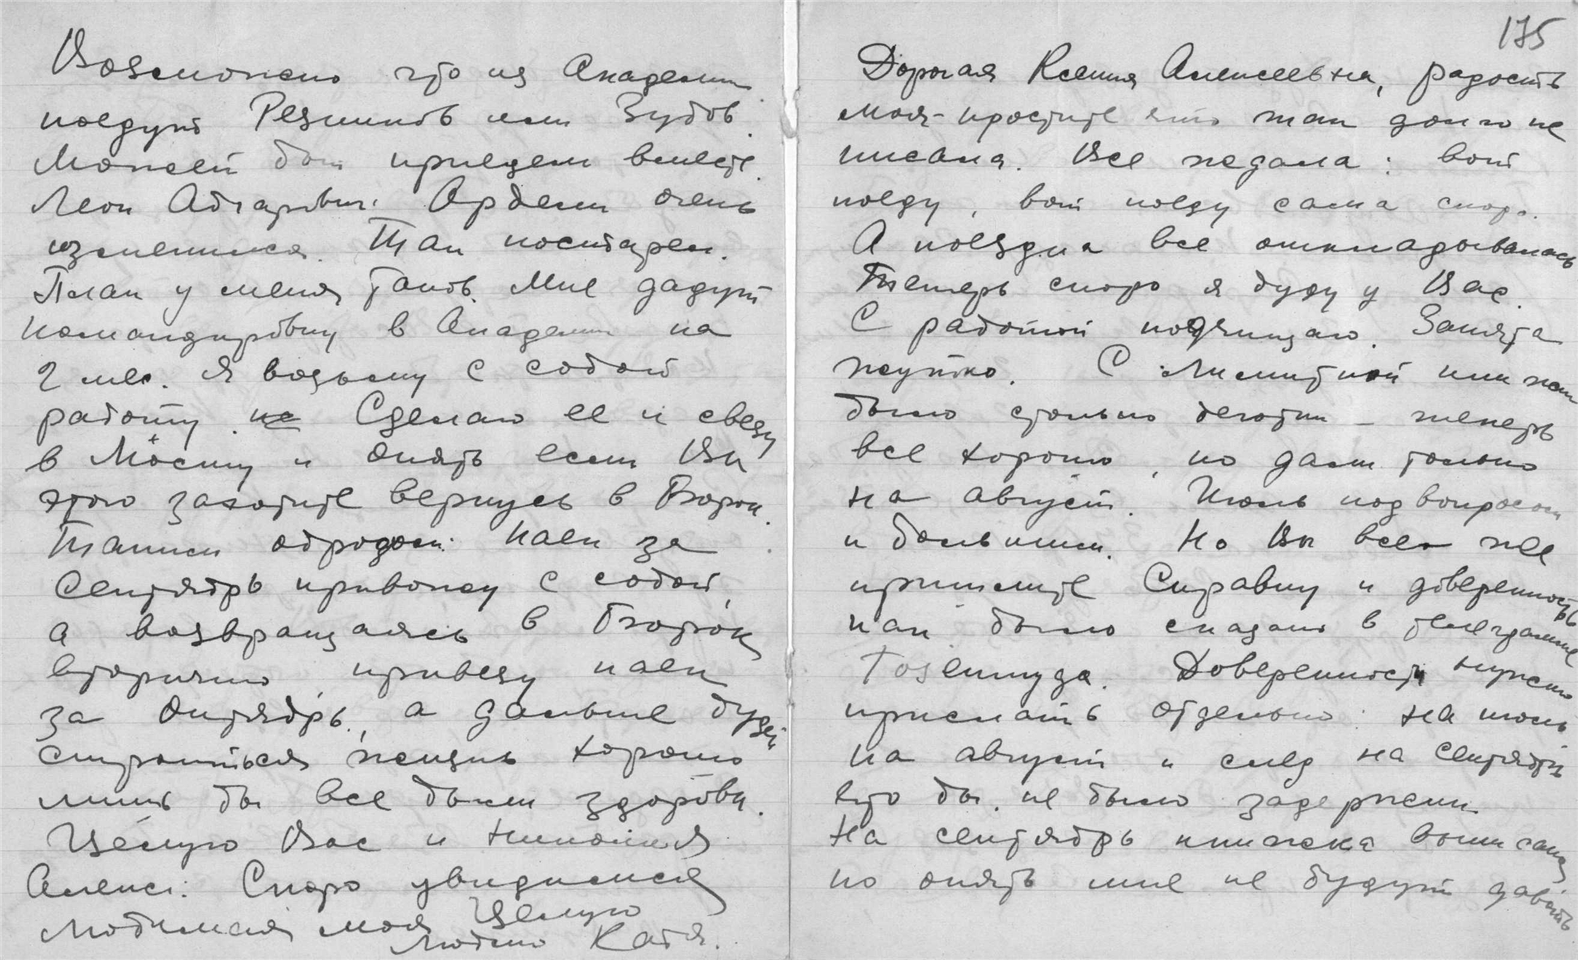 175
Дорогая Ксения Алексеевна, радость
моя - простите что так долго не
писала. Все ждала: вот
поеду, вот поеду сама скоро.
А поездка все откладывалась
Теперь скоро я буду у Вас.
С работой подчищаю. Занята
жутко. С Лимитной книжкой
было столько беготни - теперь
все хорошо, но дали только
на август. Июль под вопросом
и большим. Но Вы все же
пришлите Справку и доверенность
как было сказано в телеграмме
Доверенности нужно
прислать отдельно на июль
на август и след на сентябрь
что бы не было задержки
На сентябрь книжка выписана,
но опять мне не будут давать
Возможно что из Академии
поедут Резников или Зубов.
Может быть приедем вместе.
Леон Абгарович Ордели очень
изменился. Так постарел.
План у меня таков. Мне дадут
командировку в Академии на
2 мес. Я возьму с собой
работу Сделаю ее и свезу
в Москву и опять если Вы
этого захотите вернусь в Борок.
Таким образом паек за
Сентябрь привожу с собой,
а возвращаясь в Борок
вторично, привезу паек
за Октябрь, а дальше будет
строиться жизнь хорошо
лишь бы все были здоровы.
Целую Вас и Николая
Алекс: Скоро увидимся
любимая моя Целую
Люблю Катя.